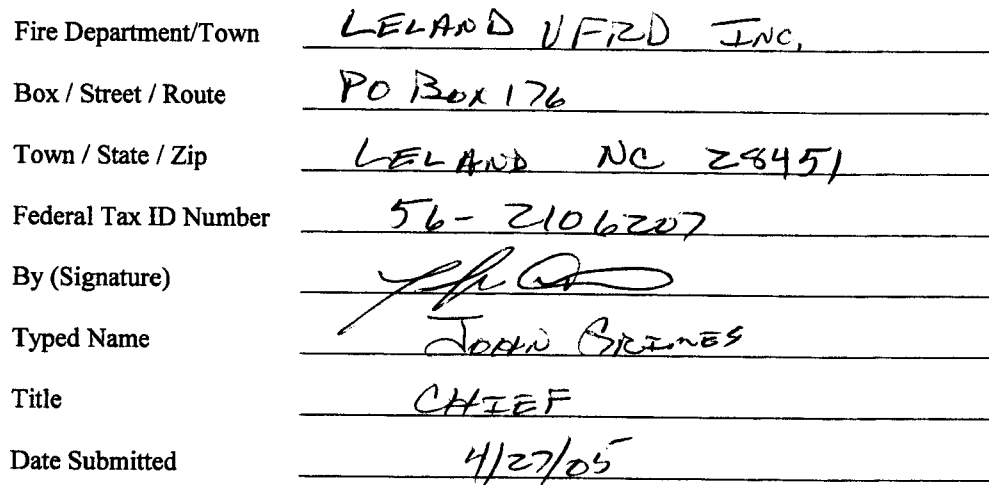 Fire Department/Town LELAND VFRD INC.
Box / Street / Route PO BOX 176
Town / State / Zip LELAND NC 28451
Federal Tax ID Number 56-2106207
By (Signature)
Typed Name JOHN GRIMES
Title CHIEF
Date Submitted 4/27/05